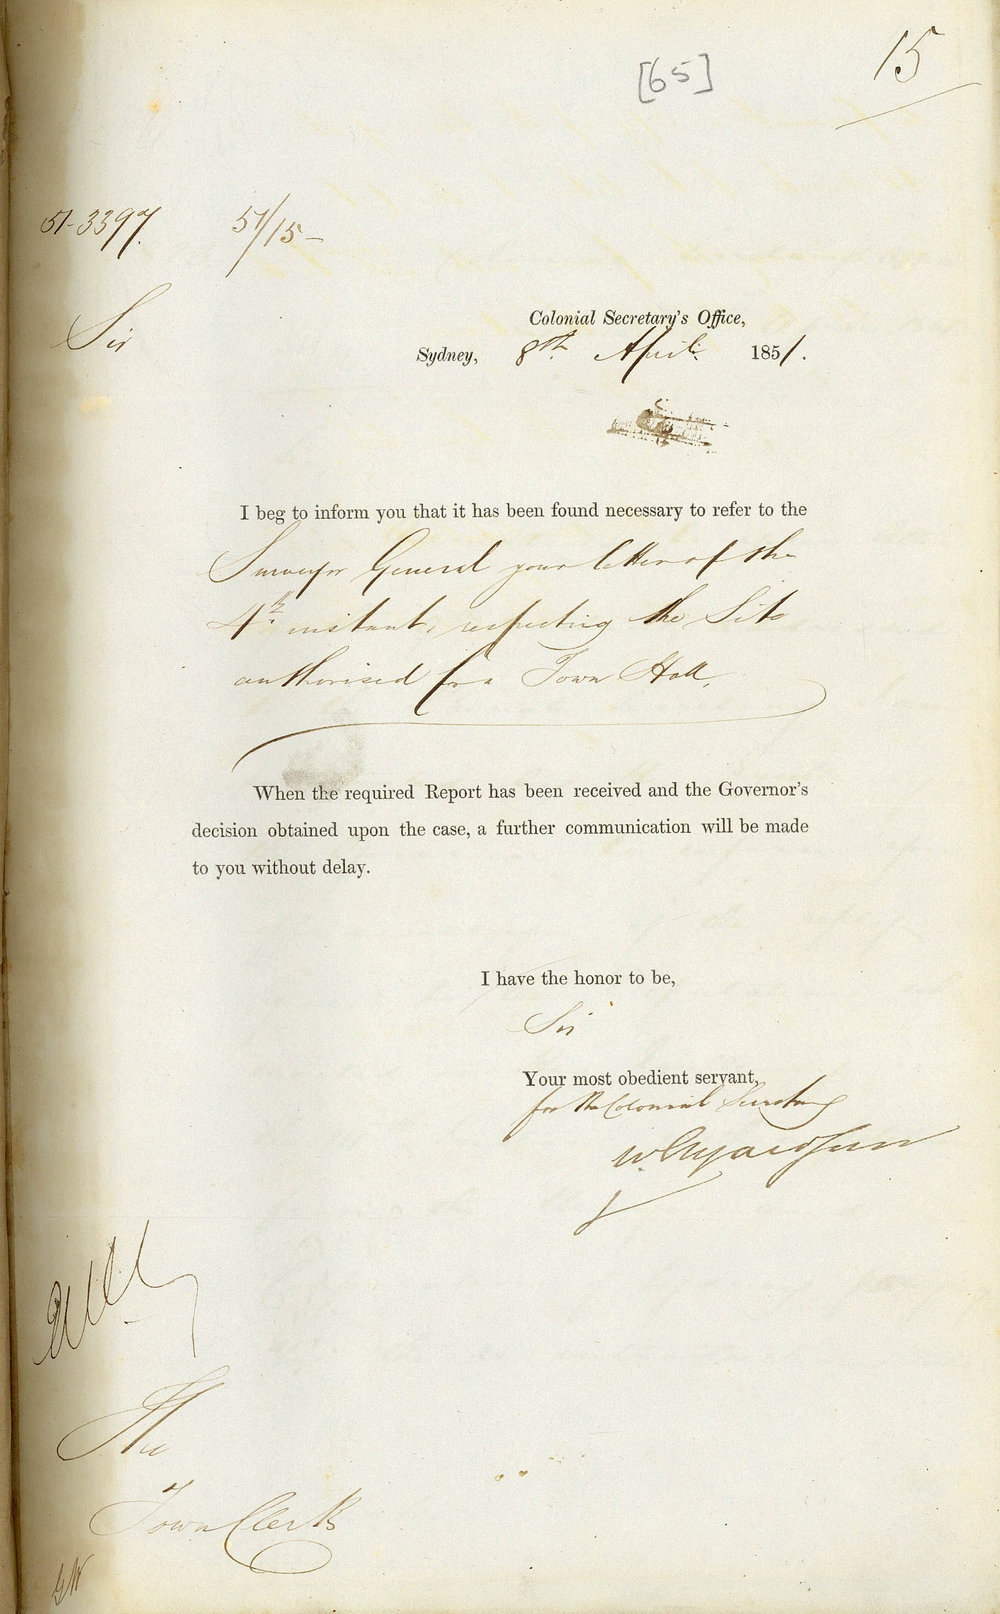 15
[65]
51-3397. 51/15-
Sir
Colonial Secretary's Office,
Sydney, 8th April 1851.
I beg to inform you that it has been found necessary to refer to the
Surveyor General your letter of the
4th instant, respecting the Site
authorised for a Town Hall.
When the required Report has been received and the Governor's
decision obtained upon the case, a further communication will be made
to you without delay.
I have the honor to be,
Sir
Your most obedient servant,
for the Colonial Secretary
W.
The
Town Clerk